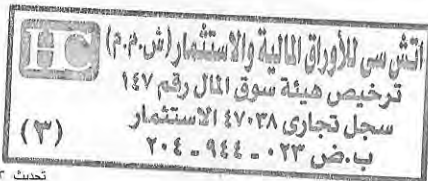 اتش سى للأوراق المالية والاستثمار (ش.م.م)
HC
ترخيص هيئة سوق المال رقم ١٤٧
سجل تجارى ٤٧٠٣٨ الاستثمار
ب.ض ٠٢٣ - ٩٤٤ - ٢٠٤
(٣)
تحديث